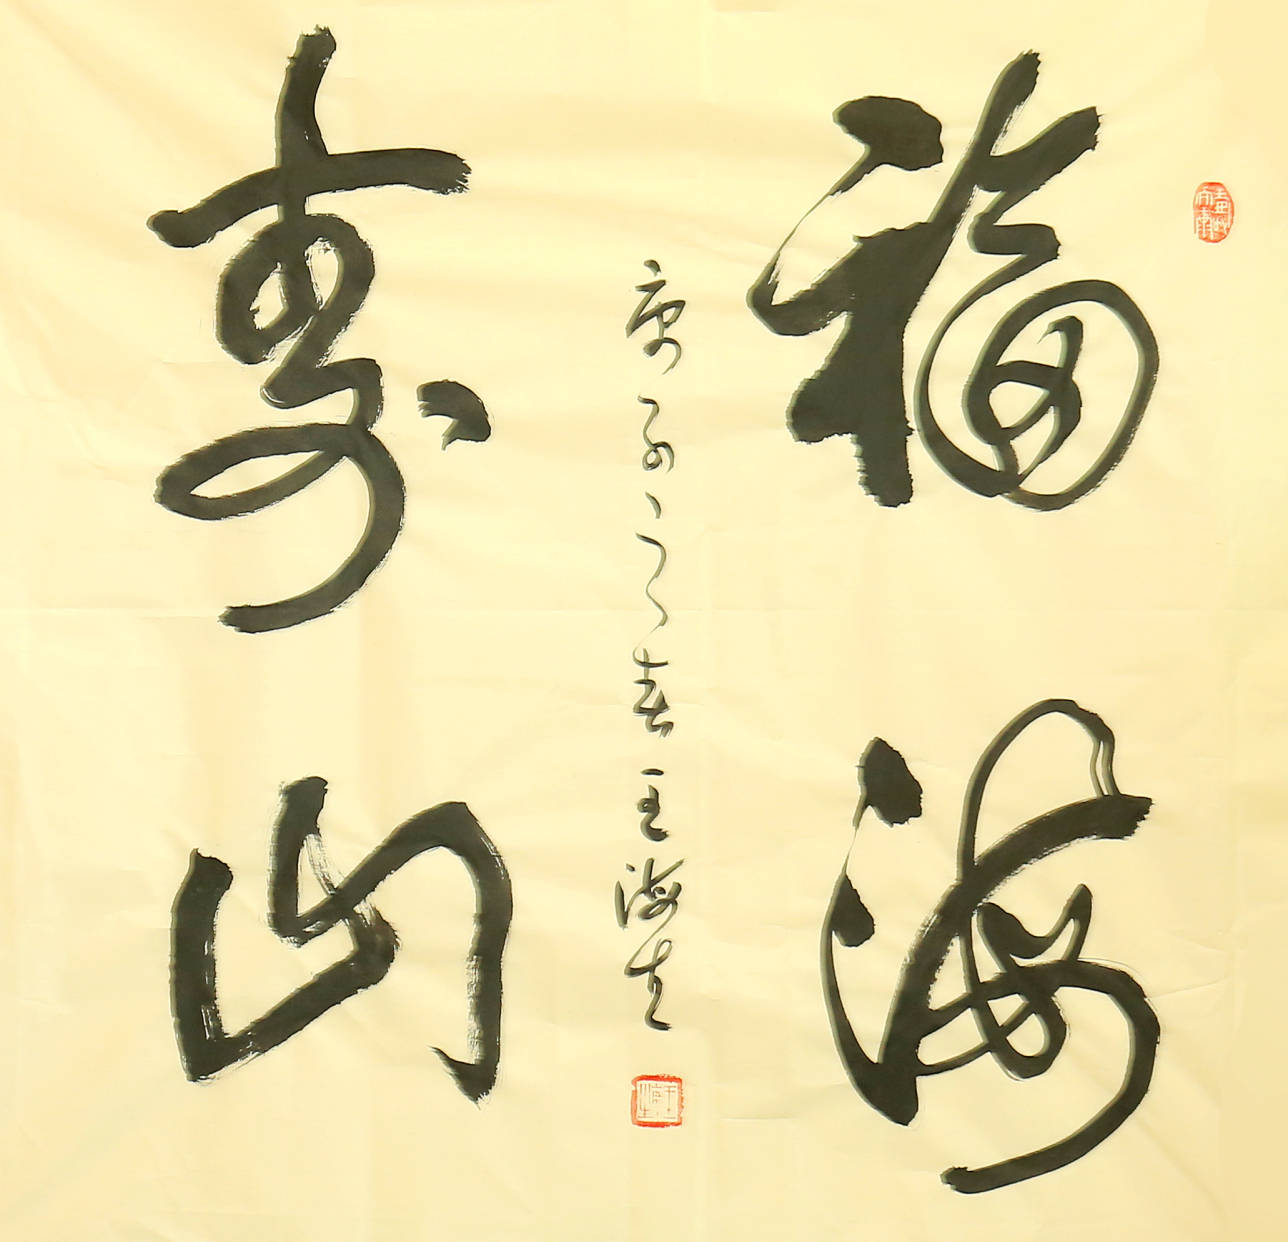 福海
寿山
庚子之春王海生